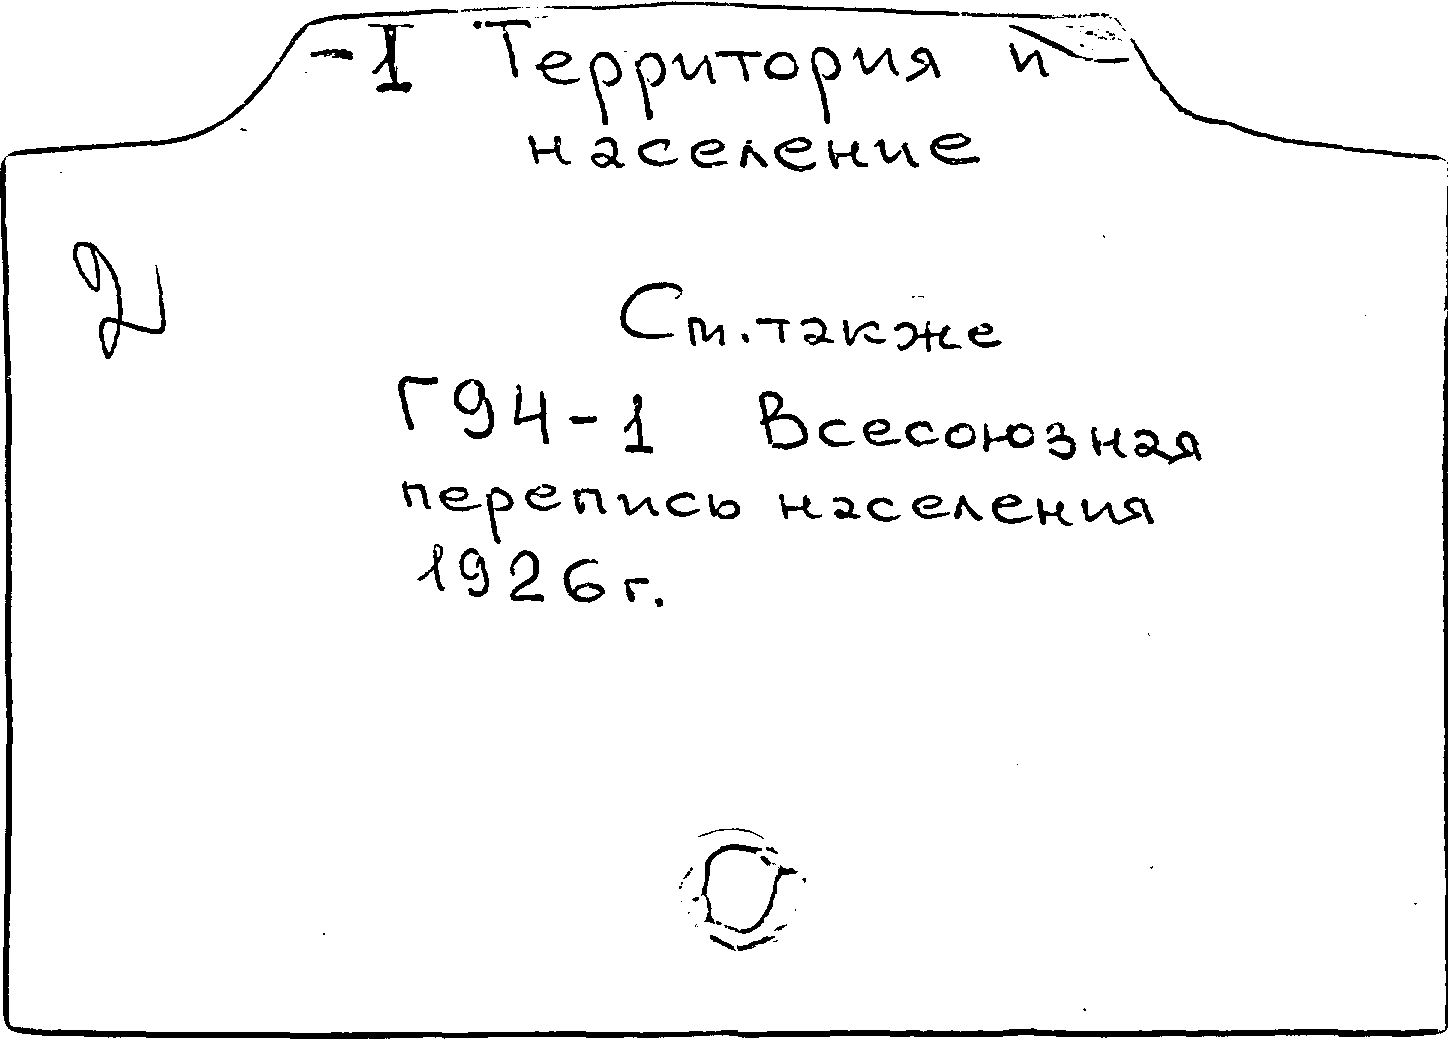 -1 Территория и
население
См. также
Г94-1 Всесоюзная
перепись населения
1926 г.